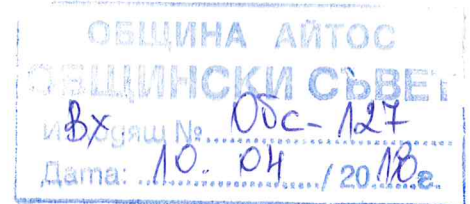 ОБЩИНА АЙТОС
ОБЩИНСКИ СЪВЕТ
Вх Изходящ №. Обс-127
Дата: 10. 04 / 2018г.